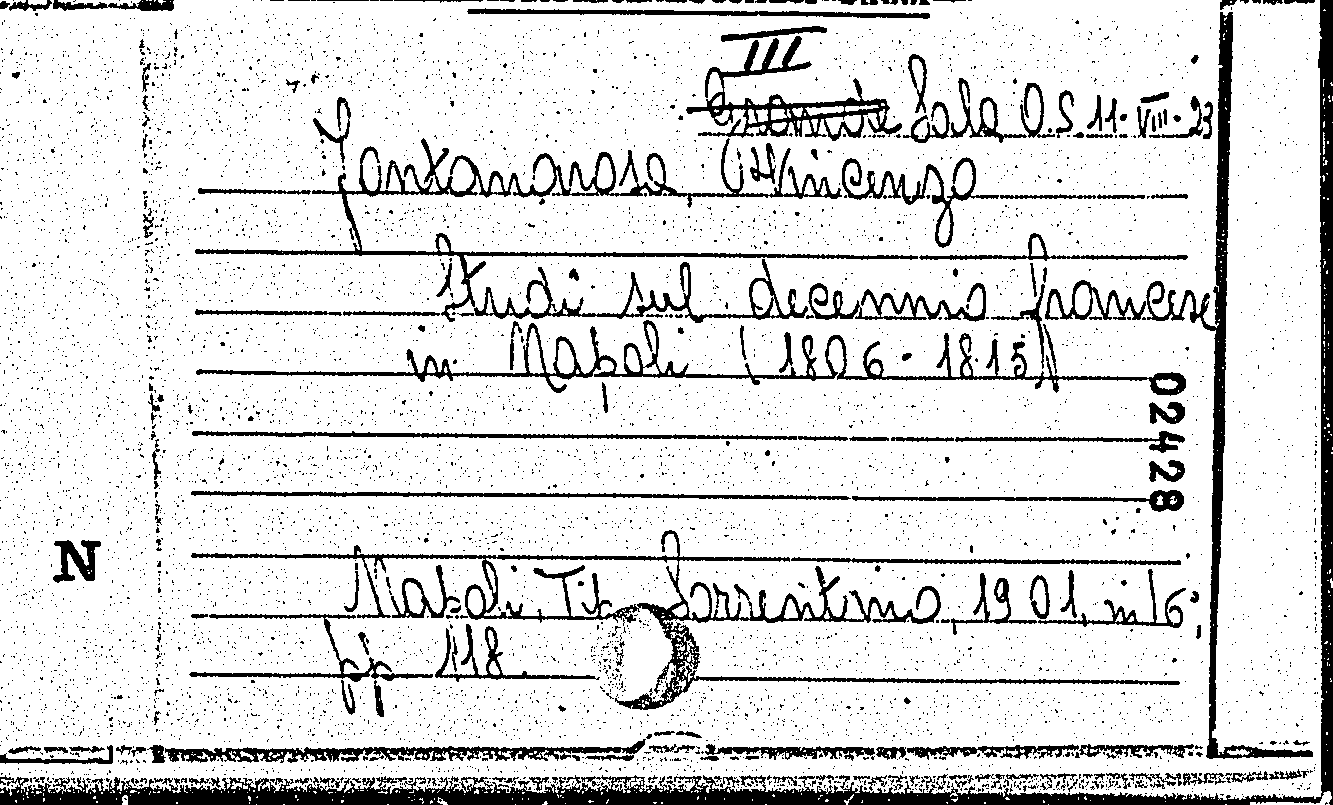 III
Grande Sala O.S. 11-VIII-23
Fontanarosa (Vincenzo
Studi sul decennio francese
in Napoli (1806-1815)
02428
N
Napoli, Tip. Sorrentino, 1901, in 16°,
pp 118